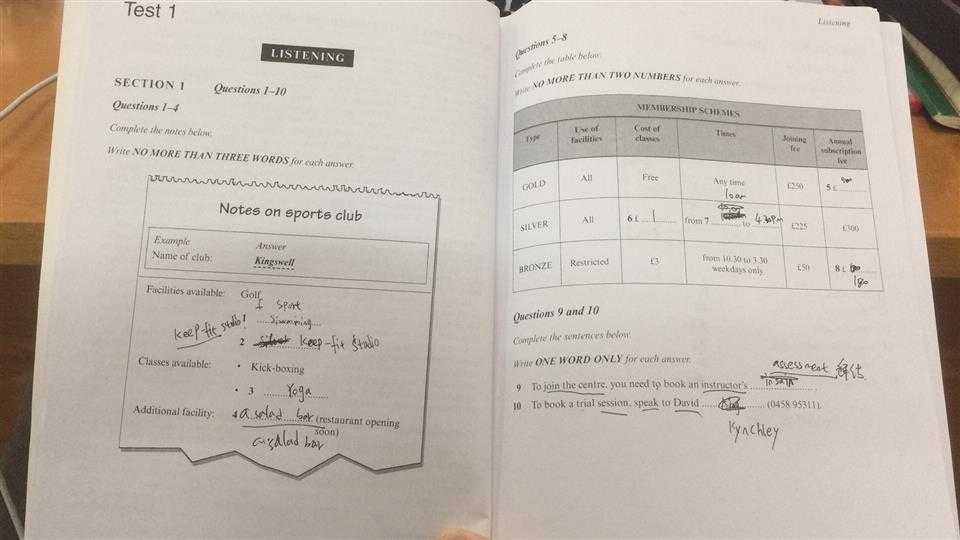 Test 1
LISTENING
SECTION 1 Questions 1–10
Questions 1–4
Complete the notes below.
Write NO MORE THAN THREE WORDS for each answer.
Notes on sports club
Example Answer
Name of club: Kingswell
Facilities available: Golf
sport
1 ....Simming....
keep fit studio
2 keep-fit studio
Classes available: • Kick-boxing
• 3 ....Yoga....
Additional facility: 4 a salad bar (restaurant opening
soon)
a salad bar
Listening
Questions 5–8
Complete the table below.
Write NO MORE THAN TWO NUMBERS for each answer.
MEMBERSHIP SCHEMES
Type Use of facilities Cost of classes Times Joining fee Annual subscription fee
GOLD All Free Any time £250 5 £ 500
10am
SILVER All 6 £ 1 from 7 to 4.30pm £225 £300
BRONZE Restricted £3 from 10.30 to 3.30 weekdays only £50 8 £
180
Questions 9 and 10
Complete the sentences below.
Write ONE WORD ONLY for each answer.
assessment 评估
9 To join the centre, you need to book an instructor's
10 To book a trial session, speak to David (0458 95311).
Kynchley